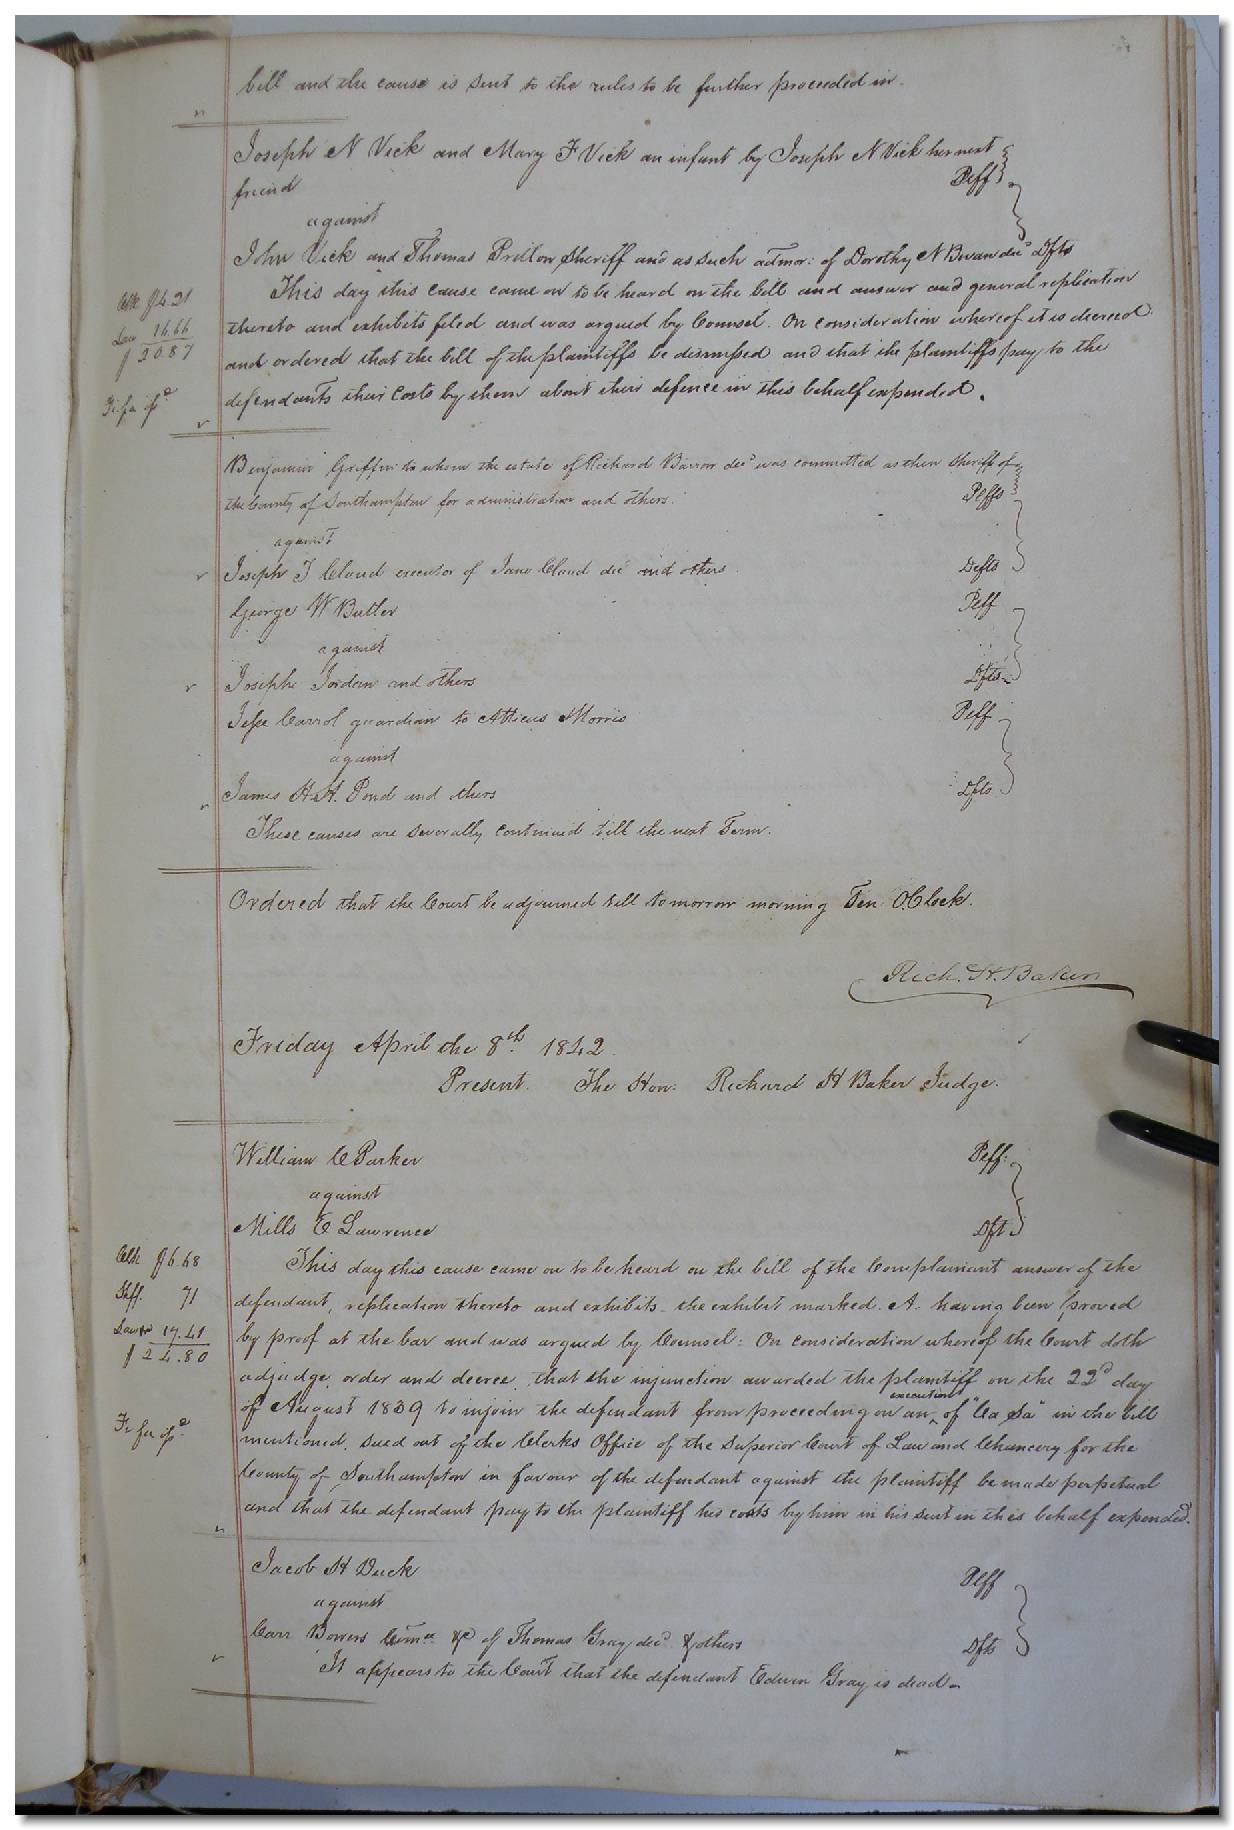 bill and the cause is sent to the rules to be further proceeded in.
Joseph N Vick and Mary F Vick an infant by Joseph N Vick her next
friend Plff
against
John Vick and Thomas Pretlow Sheriff and as such admor: of Dorothy N Bwan decd Dfts
This day this cause came on to be heard on the bill and answer and general replication
thereto and exhibits filed and was argued by Counsel. On consideration whereof it is decreed
and ordered that the bill of the plaintiffs be dismissed and that the plaintiffs pay to the
defendants their Costs by them about their defence in this behalf expended.
Clk $4.21
Law 16.66
$20.87
Fi fa isd
Benjamin Griffin to whom the estate of Richard Barrow decd was committed as then Sheriff of
the County of Southampton for administration and others. Plffs
against
Joseph T Claud executor of Jane Claud decd and others Defts
George W Butler Plff
against
Joseph Jordan and others Dfts
Jesse Carrol guardian to Atticus Morris Plff
against
James H.A. Pond and others Dfts
These causes are severally continued till the next Term.
Ordered that the Court be adjourned till tomorrow morning Ten OClock.
Rich. H. Baker
Friday April the 8th. 1842
Present. The Hon: Richard H Baker Judge.
William C Parker Plff:
against
Mills E Lawrence Dft
This day this cause came on to be heard on the bill of the Complainant answer of the
defendant, replication thereto and exhibits the exhibit marked A. having been proved
by proof at the bar and was argued by Counsel: On consideration whereof the Court doth
adjudge, order and decree, that the injunction awarded the plaintiff on the 22d day
of August 1839 to injoin the defendant from proceeding on an execution of "Ca Sa" in the bill
mentioned, sued out of the Clerks Office of the Superior Court of Law and Chancery for the
County of Southampton in favour of the defendant against the plaintiff be made perpetual
and that the defendant pay to the plaintiff his costs by him in his suit in this behalf expended.
Clk $6.68
Shff. 71
Law 17.41
$24.80
Fi fa isd
Jacob H Duck Plff
against
Carr Bowers Comee &c of Thomas Gray decd & others Dfts
It appears to the Court that the defendant Edwin Gray is dead.